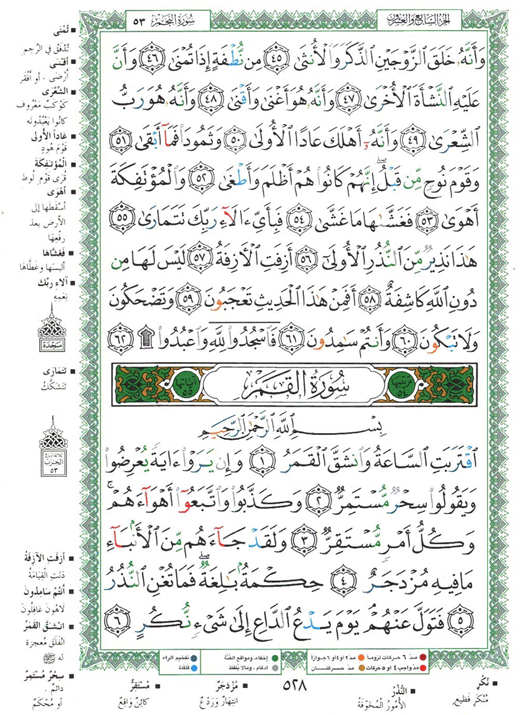 الجزء السابع والعشرون
سورة النجم ٥٣
وَأَنَّهُۥ خَلَقَ ٱلزَّوۡجَيۡنِ ٱلذَّكَرَ وَٱلۡأُنثَىٰ ٤٥ مِن نُّطۡفَةٍ إِذَا تُمۡنَىٰ ٤٦ وَأَنَّ
عَلَيۡهِ ٱلنَّشۡأَةَ ٱلۡأُخۡرَىٰ ٤٧ وَأَنَّهُۥ هُوَ أَغۡنَىٰ وَأَقۡنَىٰ ٤٨ وَأَنَّهُۥ هُوَ رَبُّ
ٱلشِّعۡرَىٰ ٤٩ وَأَنَّهُۥٓ أَهۡلَكَ عَادًا ٱلۡأُولَىٰ ٥٠ وَثَمُودَاْ فَمَآ أَبۡقَىٰ ٥١
وَقَوۡمَ نُوحٖ مِّن قَبۡلُۖ إِنَّهُمۡ كَانُواْ هُمۡ أَظۡلَمَ وَأَطۡغَىٰ ٥٢ وَٱلۡمُؤۡتَفِكَةَ
أَهۡوَىٰ ٥٣ فَغَشَّىٰهَا مَا غَشَّىٰ ٥٤ فَبِأَيِّ ءَالَآءِ رَبِّكَ تَتَمَارَىٰ ٥٥
هَٰذَا نَذِيرٞ مِّنَ ٱلنُّذُرِ ٱلۡأُولَىٰٓ ٥٦ أَزِفَتِ ٱلۡأٓزِفَةُ ٥٧ لَيۡسَ لَهَا مِن
دُونِ ٱللَّهِ كَاشِفَةٌ ٥٨ أَفَمِنۡ هَٰذَا ٱلۡحَدِيثِ تَعۡجَبُونَ ٥٩ وَتَضۡحَكُونَ
وَلَا تَبۡكُونَ ٦٠ وَأَنتُمۡ سَٰمِدُونَ ٦١ فَٱسۡجُدُواْۤ لِلَّهِۤ وَٱعۡبُدُواْ ۩ ٦٢
سُورَةُ القَمَرِ
بِسۡمِ ٱللَّهِ ٱلرَّحۡمَٰنِ ٱلرَّحِيمِ
ٱقۡتَرَبَتِ ٱلسَّاعَةُ وَٱنشَقَّ ٱلۡقَمَرُ ١ وَإِن يَرَوۡاْ ءَايَةٗ يُعۡرِضُواْ
وَيَقُولُواْ سِحۡرٞ مُّسۡتَمِرّٞ ٢ وَكَذَّبُواْ وَٱتَّبَعُوٓاْ أَهۡوَآءَهُمۡۚ
وَكُلُّ أَمۡرٖ مُّسۡتَقِرّٞ ٣ وَلَقَدۡ جَآءَهُم مِّنَ ٱلۡأَنۢبَآءِ
مَا فِيهِ مُزۡدَجَرٌ ٤ حِكۡمَةُۢ بَٰلِغَةٞۖ فَمَا تُغۡنِ ٱلنُّذُرُ
٥ فَتَوَلَّ عَنۡهُمۡۘ يَوۡمَ يَدۡعُ ٱلدَّاعِ إِلَىٰ شَيۡءٖ نُّكُرٍ ٦
تُمْنَى
تُدْفَقُ في الرَّحِمِ
أقْنى
أرْضَى، أو أفْقَر
الشِّعْرَى
كَوْكَبٌ مَعْرُوفٌ
كانوا يَعْبُدُونَه
عاداً الأولَى
قَوْمُ هُودٍ
المُؤْتَفِكَةَ
قُرى قَوْمِ لُوط
أهْوَى
أسْقَطَها إلى
الأرض بعدَ
رفعِها
فَغَشَّاها
ألْبَسَها وغَطَّاها
آلاءِ رَبِّكَ
نِعَمِهِ
سجدة
تَتَمَارَى
تَتَشَكَّكُ
الحزب
٥٣
أزِفَتِ الآزِفَةُ
دَنَتِ القِيَامَةُ
أنْتُمْ سامِدُونَ
لاهُونَ غافِلُونَ
انْشَقَّ القَمَرُ
انْفَلَقَ مُعجِزةً
له ﷺ
سِحْرٌ مُسْتَمِرٌّ
دائمٌ،
أو مُحْكَمٌ
مدّ ٦ حركات لزوماً
مدّ ٢ أو ٤ أو ٦ جوازاً
إخفاء، ومواقع الغنّة
تفخيم الراء
مدّ واجب ٤ أو ٥ حركات
مدّ حركتان
إدغام، وما لا يُلفظ
قلقلة
٥٢٨
مُسْتَقِرٌّ
كائنٌ واقعٌ
مُزْدَجَرٌ
انتِهارٌ ورَدْعٌ
النُّذُرُ
الأُمُورُ المُخَوِّفَةُ
نُكُرٍ
مُنْكَرٍ فَظِيعٍ